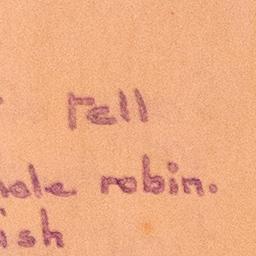 rell
hole robin.
ish